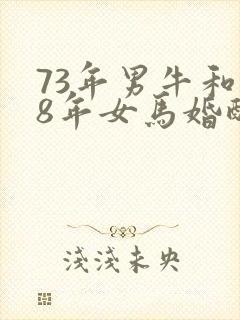 73年男牛和
8年女馬婚配
淺淺未央